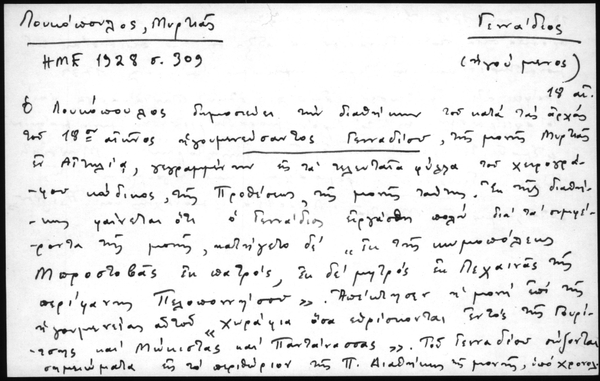 Λουκόπουλος, Μυρτιάς Γεννάδιος
ΗΜΕ 1928 σ. 309 (ἡγούμενος)
18 αἰ.
Ὁ Λουκόπουλος δημοσιεύει τὴν διαθήκην τοῦ κατὰ τὰς ἀρχὰς
τοῦ 18ου αἰῶνος ἡγουμενεύσαντος Γενναδίου, τῆς μονῆς Μυρτιᾶς
ἐν Αἰτωλίᾳ, γεγραμμένην εἰς τὰ τελευταῖα φύλλα τοῦ χειρογρά-
φου κώδικος, τῆς Προθέσεως, τῆς μονῆς ταύτης. Ἐκ τῆς διαθή-
κης φαίνεται ὅτι ὁ Γεννάδιος εἰργάσθη πολὺ διὰ τὰ συμφέ-
ροντα τῆς μονῆς, κατήγετο δὲ „ ἐκ τῆς κωμοπόλεως
Μπροστοβᾶς ἐκ πατρός, ἐκ δὲ μητρὸς ἐκ Πεχαινᾶς τῆς
περιφανῆς Πελοποννήσου ». Ἀπέκτησεν ἡ μονὴ ἐπὶ τῆς
ἡγουμενείας αὐτοῦ « χωράφια ὅσα εὑρίσκονται ἐντὸς τῆς Γουρί-
τσης καὶ Μώκιστας καὶ Παντάνασσας ». Τοῦ Γενναδίου σώζονται
σημειώματα εἰς τὸ περιθώριον τῆς Π. Διαθήκης τῆς μονῆς, ὑπὸ χρονολ.